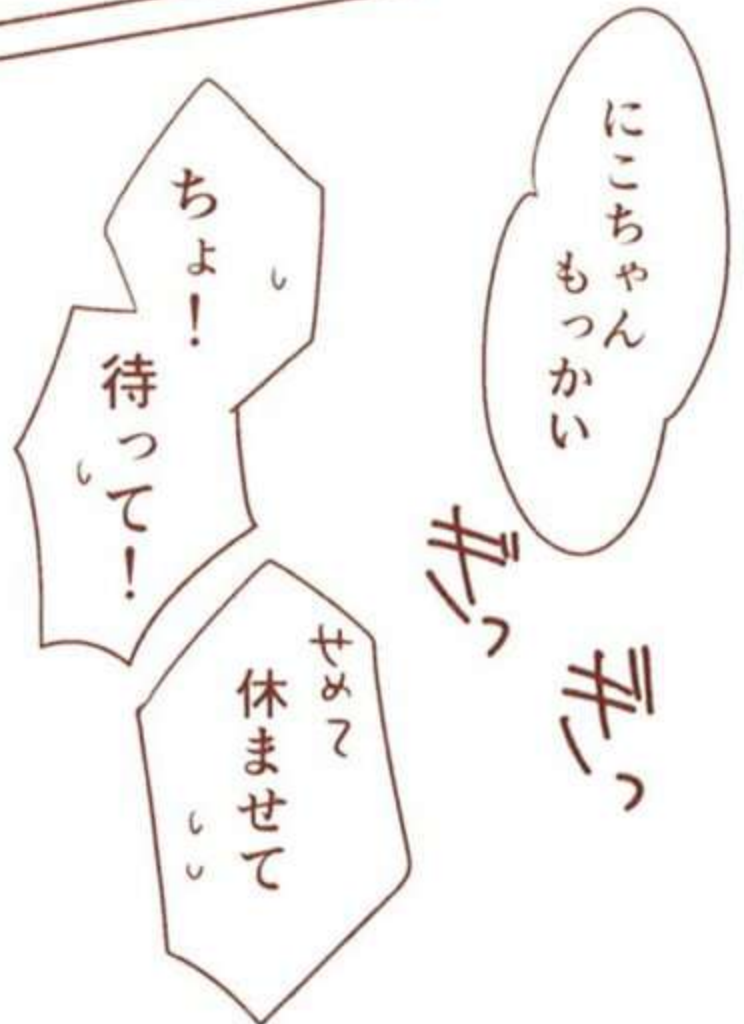 にこちゃん
もっかい
ぎっ
ぎっ
ちょ！
待って！
せめて
休ませて